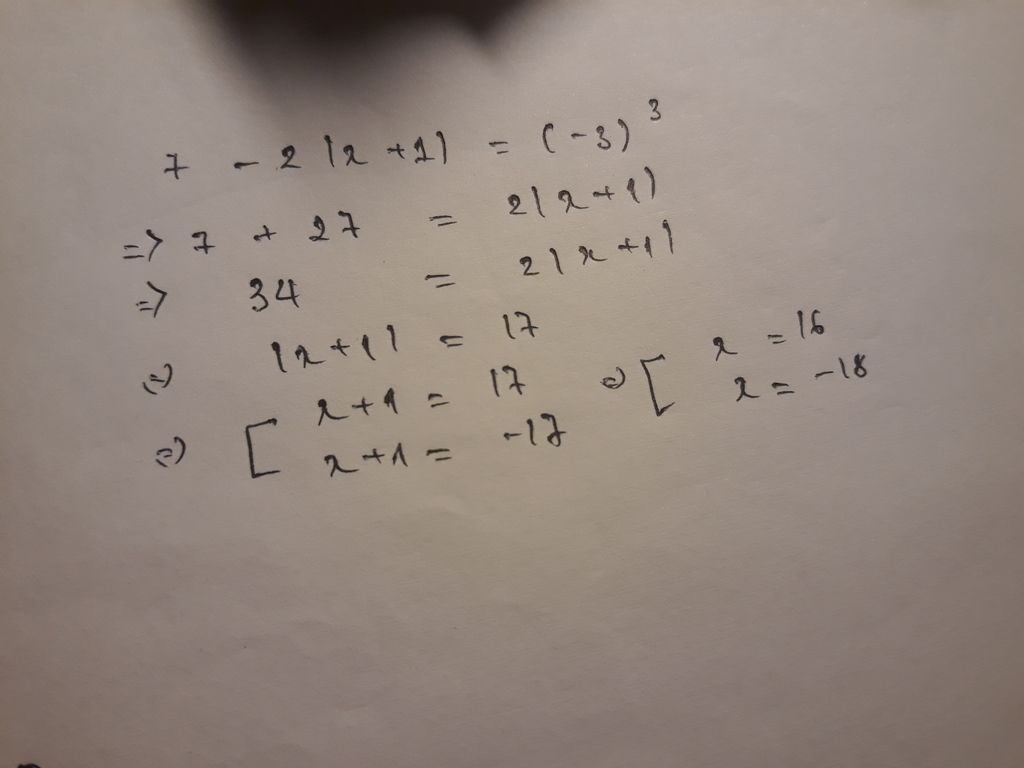 7 - 2 |x + 1| = (-3)³
=> 7 + 27 = 2|x + 1|
=> 34 = 2|x + 1|
=> |x + 1| = 17
=> [ x + 1 = 17 => [ x = 16
x + 1 = -17 x = -18